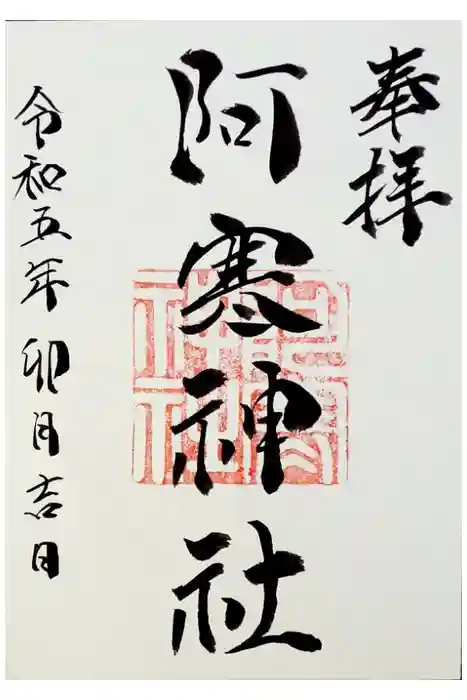 奉拝
阿寒神社
令和五年 卯月吉日